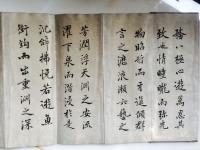 騖八極心遊萬仞其
致也情曈曨而彌鮮
物昭晰而互進傾群
言之瀝液漱六藝之
芳潤浮天淵之安流
濯下泉而潛浸於是
沉辭怫悅若遊魚
銜鉤而出重淵之深